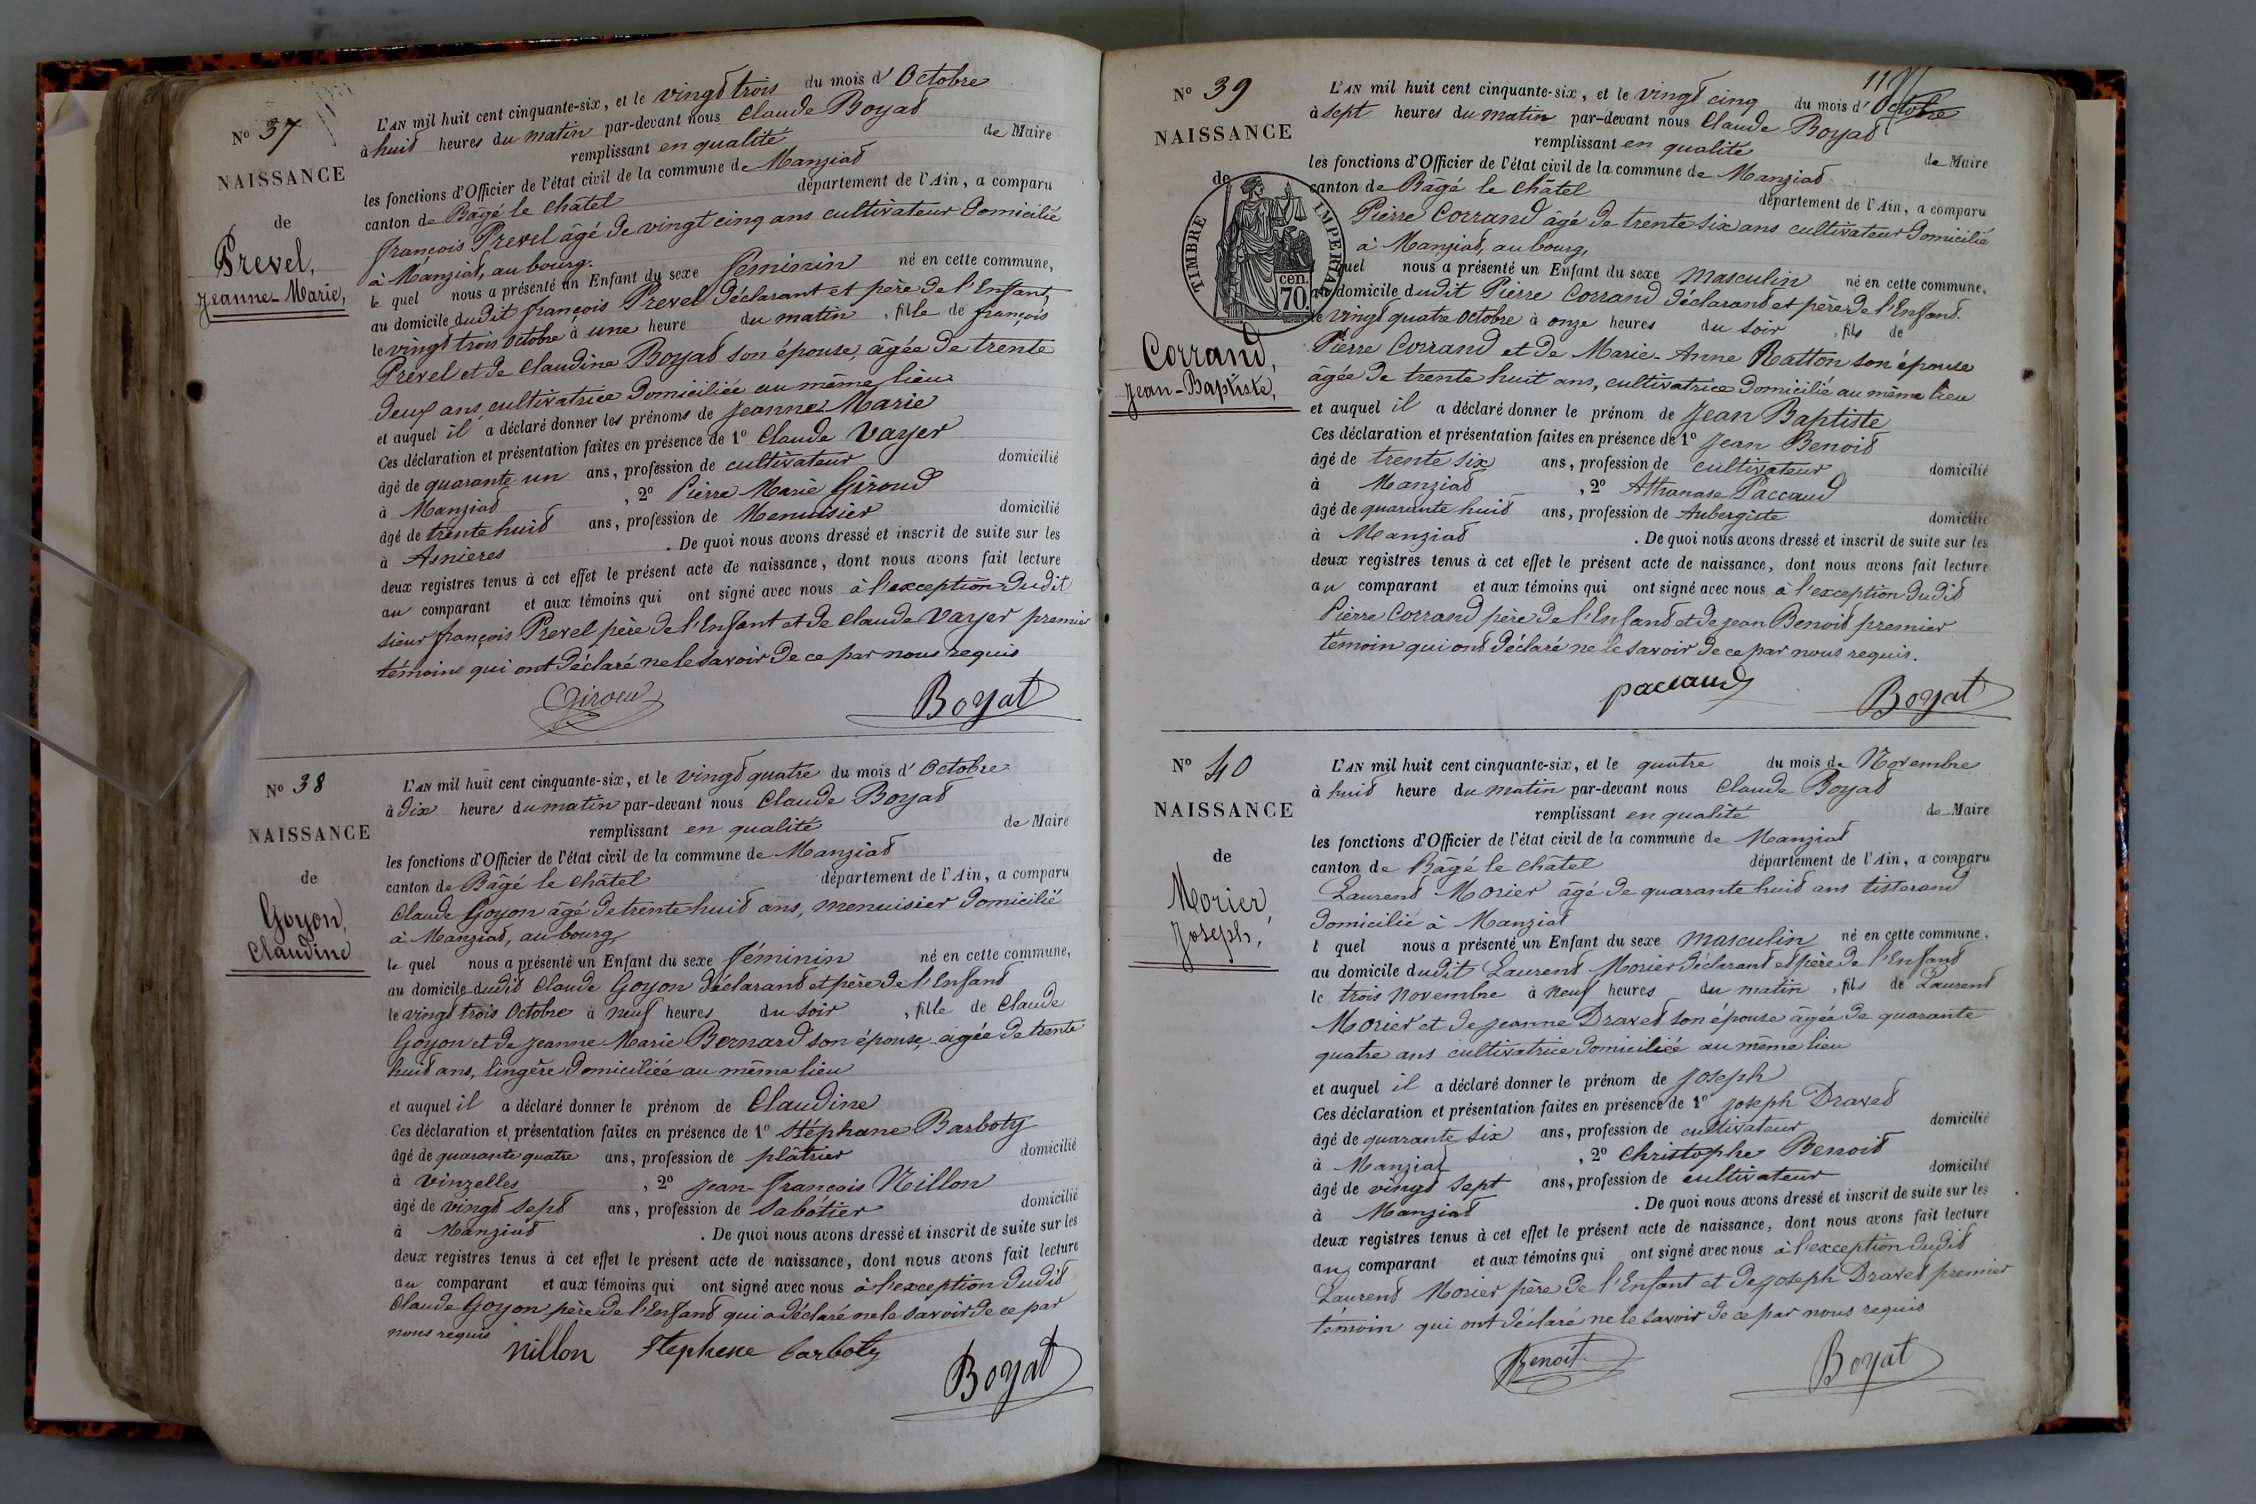 N° 37
NAISSANCE
de
Prevel,
Jeanne-Marie,
L'AN mil huit cent cinquante-six, et le vingt trois du mois d'Octobre
à huit heures du matin par-devant nous Claude Boyat
remplissant en qualité de Maire
les fonctions d'Officier de l'état civil de la commune de Manziat
canton de Bâgé le Châtel département de l'Ain, a comparu
françois Prevel âgé de vingt cinq ans cultivateur domicilié
à Manziat, au bourg.
le quel nous a présenté un Enfant du sexe féminin né en cette commune,
au domicile dudit françois Prevel déclarant et père de l'Enfant,
le vingt trois Octobre à une heure du matin, fille de françois
Prevel et de Claudine Boyat son épouse, âgée de trente
deux ans, cultivatrice domiciliée au même lieu
et auquel il a déclaré donner les prénoms de Jeanne-Marie
Ces déclaration et présentation faites en présence de 1° Claude Vayer
âgé de quarante un ans, profession de cultivateur domicilié
à Manziat, 2° Pierre Marie Giroud
âgé de trente huit ans, profession de Menuisier domicilié
à Asnieres. De quoi nous avons dressé et inscrit de suite sur les
deux registres tenus à cet effet le présent acte de naissance, dont nous avons fait lecture
au comparant et aux témoins qui ont signé avec nous à l'exception dudit
sieur françois Prevel père de l'Enfant et de Claude Vayer premier
témoins qui ont déclaré ne le savoir de ce par nous requis
Giroud Boyat
N° 38
NAISSANCE
de
Goyon,
Claudine
L'AN mil huit cent cinquante-six, et le vingt quatre du mois d'Octobre
à dix heures du matin par-devant nous Claude Boyat
remplissant en qualité de Maire
les fonctions d'Officier de l'état civil de la commune de Manziat
canton de Bâgé le Châtel département de l'Ain, a comparu
Claude Goyon âgé de trente huit ans, menuisier domicilié
à Manziat, au bourg
le quel nous a présenté un Enfant du sexe féminin né en cette commune,
au domicile dudit Claude Goyon déclarant et père de l'Enfant
le vingt trois Octobre à neuf heures du soir, fille de Claude
Goyon et de Jeanne Marie Bernard son épouse, âgée de trente
huit ans, lingère domiciliée au même lieu
et auquel il a déclaré donner le prénom de Claudine
Ces déclaration et présentation faites en présence de 1° Stéphane Barboty
âgé de quarante quatre ans, profession de plâtrier domicilié
à Vinzelles, 2° Jean-françois Nillon
âgé de vingt sept ans, profession de Sabotier domicilié
à Manziat. De quoi nous avons dressé et inscrit de suite sur les
deux registres tenus à cet effet le présent acte de naissance, dont nous avons fait lecture
au comparant et aux témoins qui ont signé avec nous à l'exception dudit
Claude Goyon père de l'Enfant qui a déclaré ne le savoir de ce par
nous requis
Nillon Stephene barboty Boyat
N° 39
NAISSANCE
de
TIMBRE IMPERIAL
cen.
70.
Corrand,
Jean-Baptiste,
L'AN mil huit cent cinquante-six, et le vingt cinq du mois d'Octobre
à sept heures du matin par-devant nous Claude Boyat
remplissant en qualité de Maire
les fonctions d'Officier de l'état civil de la commune de Manziat
canton de Bâgé le Châtel département de l'Ain, a comparu
Pierre Corrand âgé de trente six ans cultivateur domicilié
à Manziat, au bourg,
quel nous a présenté un Enfant du sexe masculin né en cette commune,
au domicile dudit Pierre Corrand déclarant et père de l'Enfant.
le vingt quatre Octobre à onze heures du soir, fils de
Pierre Corrand et de Marie-Anne Ratton son épouse
âgée de trente huit ans, cultivatrice domicilié au même lieu
et auquel il a déclaré donner le prénom de Jean Baptiste
Ces déclaration et présentation faites en présence de 1° Jean Benoit
âgé de trente six ans, profession de cultivateur domicilié
à Manziat, 2° Athanase Paccaud
âgé de quarante huit ans, profession de Aubergiste domicilié
à Manziat. De quoi nous avons dressé et inscrit de suite sur les
deux registres tenus à cet effet le présent acte de naissance, dont nous avons fait lecture
au comparant et aux témoins qui ont signé avec nous à l'exception dudit
Pierre Corrand père de l'Enfant et de Jean Benoit premier
témoin qui ont déclaré ne le savoir de ce par nous requis.
paccaud Boyat
N° 40
NAISSANCE
de
Morier,
Joseph,
L'AN mil huit cent cinquante-six, et le quatre du mois de Novembre
à huit heure du matin par-devant nous Claude Boyat
remplissant en qualité de Maire
les fonctions d'Officier de l'état civil de la commune de Manziat
canton de Bâgé le Châtel département de l'Ain, a comparu
Laurent Morier âgé de quarante huit ans tisserand
domicilié à Manziat
l quel nous a présenté un Enfant du sexe masculin né en cette commune,
au domicile dudit Laurent Morier déclarant et père de l'Enfant
le trois Novembre à neuf heures du matin, fils de Laurent
Morier et de Jeanne Dravet son épouse âgée de quarante
quatre ans cultivatrice domiciliée au même lieu
et auquel il a déclaré donner le prénom de Joseph
Ces déclaration et présentation faites en présence de 1° Joseph Dravet
âgé de quarante six ans, profession de cultivateur domicilié
à Manziat, 2° Christophe Benoit
âgé de vingt sept ans, profession de cultivateur domicilié
à Manziat. De quoi nous avons dressé et inscrit de suite sur les
deux registres tenus à cet effet le présent acte de naissance, dont nous avons fait lecture
au comparant et aux témoins qui ont signé avec nous à l'exception dudit
Laurent Morier père de l'Enfant et de Joseph Dravet premier
témoin qui ont déclaré ne le savoir de ce par nous requis
Benoit Boyat